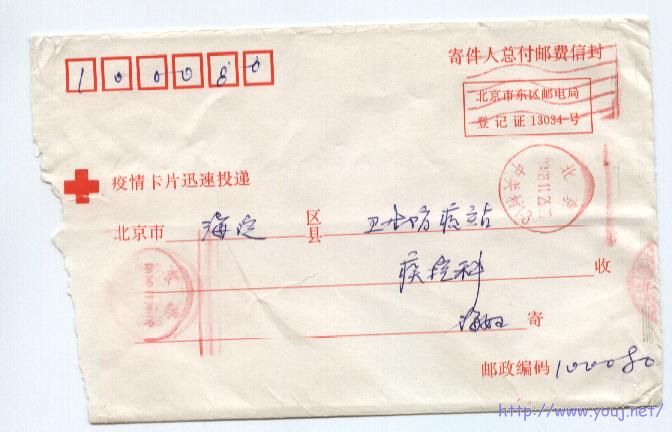 100080
寄件人总付邮费信封
北京市东区邮电局
登记证13034号
疫情卡片迅速投递
北京市 海淀 区县 卫生防疫站
疾控科 收
海妇 寄
邮政编码 100080
http://www.youj.net/